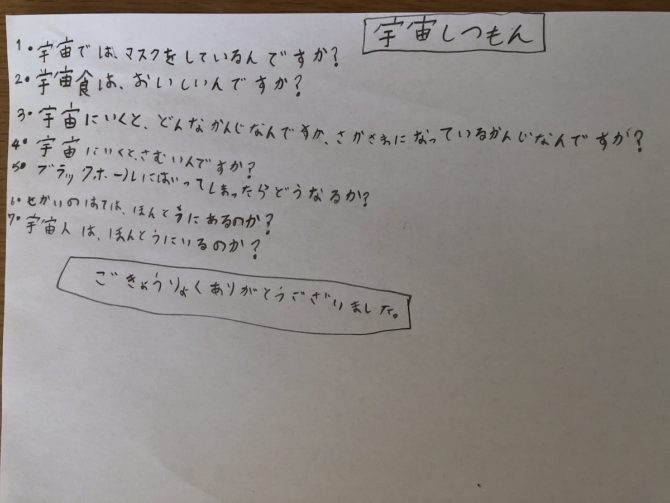 宇宙しつもん
1. 宇宙では、マスクをしているんですか?
2. 宇宙食は、おいしいんですか?
3. 宇宙にいくと、どんなかんじなんですか、さかさまになっているかんじなんですか?
4. 宇宙にいくと、さむいんですか?
5. ブラックホールにはいってしまったらどうなるか?
6. せかいのはては、ほんとうにあるのか?
7. 宇宙人は、ほんとうにいるのか?
ごきょうりょくありがとうございました。